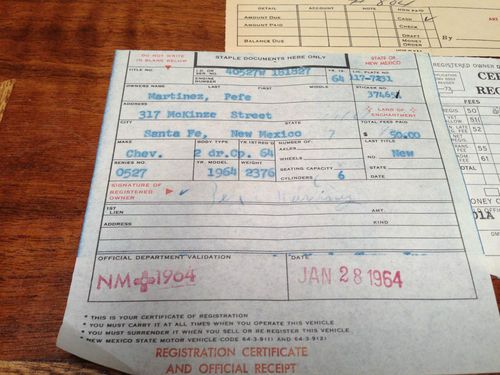 DETAIL ACCOUNT NOW PAID
AMOUNT DUE CASH
AMOUNT PAID CHECK
DRAFT
MONEY ORDER
BALANCE DUE By
DO NOT WRITE IN BLANK BELOW
STAPLE DOCUMENTS HERE ONLY
STATE OF NEW MEXICO
TITLE NO. I.D. OR SER. NO. ENGINE NUMBER YR. IS. LIC. PLATE NO.
40527W 181827 64
OWNERS NAME LAST FIRST MIDDLE STICKER NO.
Martinez, Pefe
ADDRESS LAND OF ENCHANTMENT
317 McKinze Street
CITY STATE TOTAL FEES PAID
Santa Fe, New Mexico $ 50.00
MAKE BODY TYPE YR. 1ST REG'D NUMBER OF: LAST TITLE
Chev. 2 dr.Cp. 64 AXLES New
WHEELS
SERIES NO. YR. MODEL WEIGHT SEATING CAPACITY
0527 1964 2376 CYLINDERS 6
SIGNATURE OF REGISTERED OWNER
1ST LIEN AMT.
ADDRESS KIND
OFFICIAL DEPARTMENT VALIDATION DATE
NM 1964 JAN 28 1964
* THIS IS YOUR CERTIFICATE OF REGISTRATION
* YOU MUST CARRY IT AT ALL TIMES WHEN YOU OPERATE THIS VEHICLE
* YOU MUST SURRENDER IT WHEN YOU SELL OR RE-REGISTER THIS VEHICLE
* NEW MEXICO STATE MOTOR VEHICLE CODE 64-3-9(1) AND 64-3-9(2)
REGISTRATION CERTIFICATE
AND OFFICIAL RECEIPT